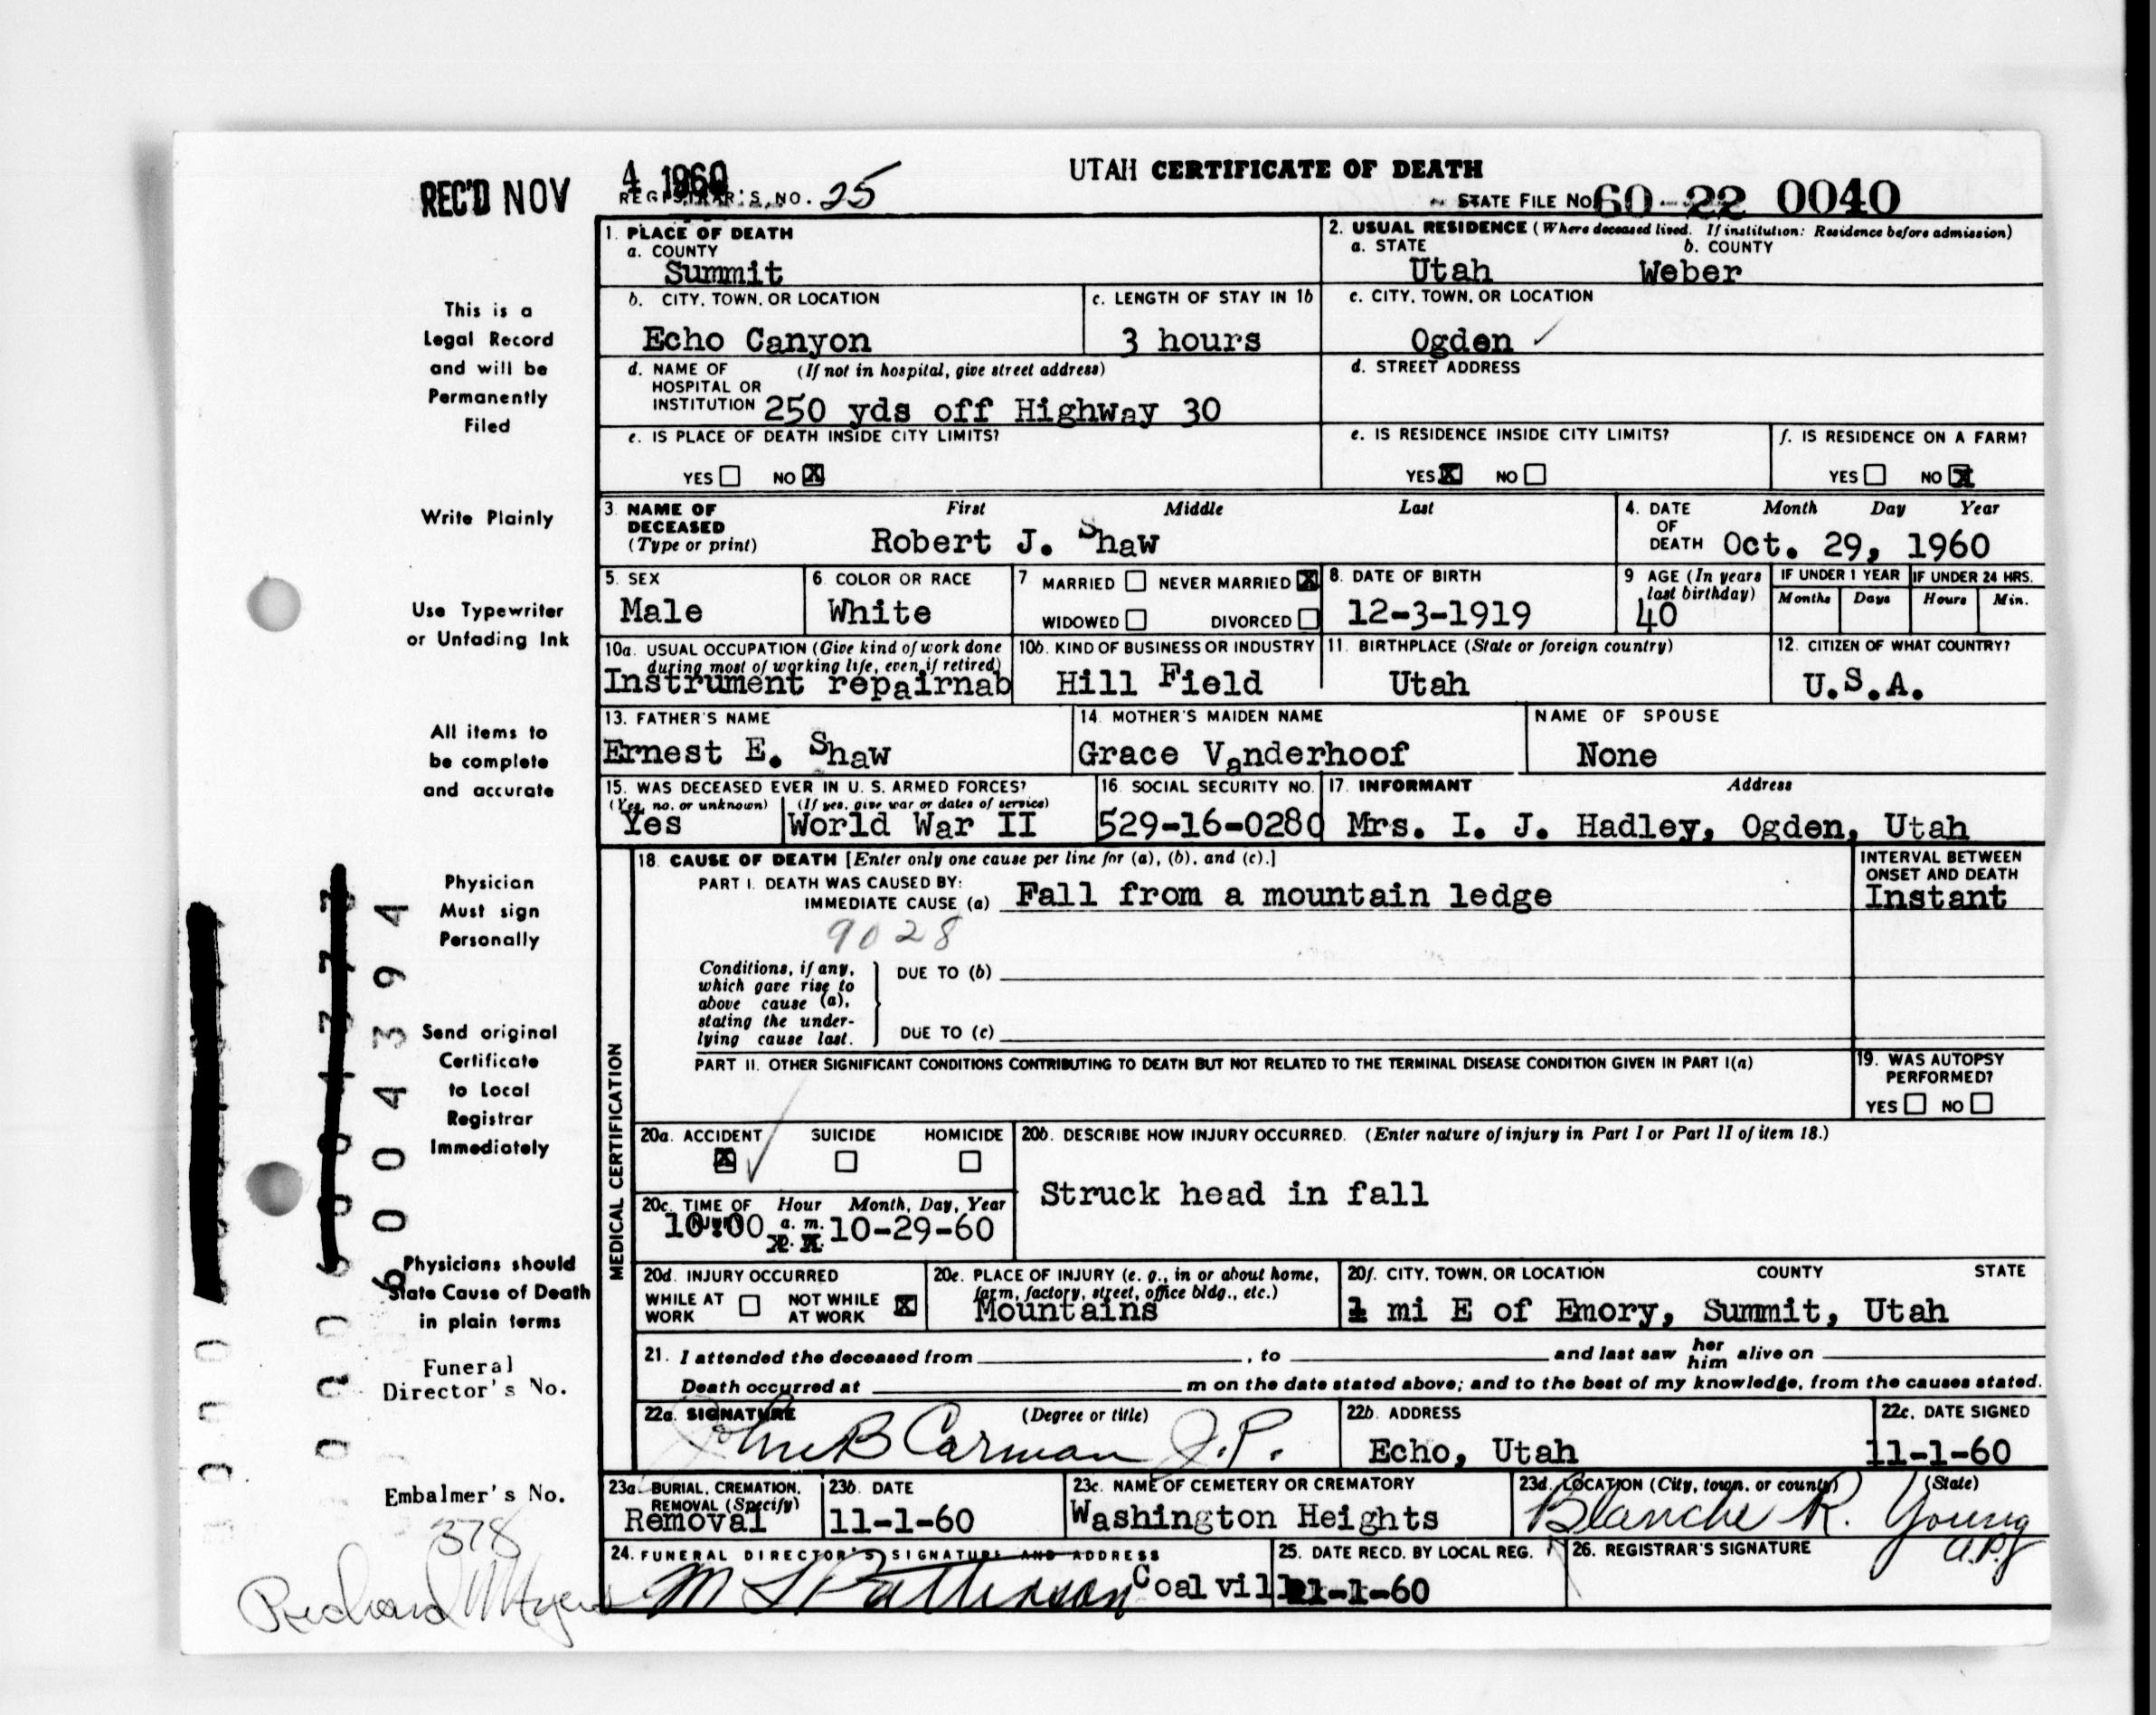 REC'D NOV 4 1960
UTAH CERTIFICATE OF DEATH
REGISTRAR'S NO. 25
STATE FILE NO. 60-22 0040
This is a
Legal Record
and will be
Permanently
Filed
Write Plainly
Use Typewriter
or Unfading Ink
All items to
be complete
and accurate
Physician
Must sign
Personally
Send original
Certificate
to Local
Registrar
Immediately
Physicians should
State Cause of Death
in plain terms
Funeral
Director's No.
Embalmer's No.
378
6004394
1. PLACE OF DEATH
a. COUNTY
Summit
2. USUAL RESIDENCE (Where deceased lived. If institution: Residence before admission)
a. STATE b. COUNTY
Utah Weber
b. CITY, TOWN, OR LOCATION
Echo Canyon
c. LENGTH OF STAY IN 1b
3 hours
c. CITY, TOWN, OR LOCATION
Ogden ✓
d. NAME OF (If not in hospital, give street address)
HOSPITAL OR
INSTITUTION 250 yds off Highway 30
d. STREET ADDRESS
e. IS PLACE OF DEATH INSIDE CITY LIMITS?
YES ☐ NO ☒
e. IS RESIDENCE INSIDE CITY LIMITS?
YES ☒ NO ☐
f. IS RESIDENCE ON A FARM?
YES ☐ NO ☒
3. NAME OF First Middle Last
DECEASED
(Type or print) Robert J. Shaw
4. DATE Month Day Year
OF
DEATH Oct. 29, 1960
5. SEX
Male
6. COLOR OR RACE
White
7 MARRIED ☐ NEVER MARRIED ☒
WIDOWED ☐ DIVORCED ☐
8. DATE OF BIRTH
12-3-1919
9 AGE (In years
last birthday)
40
IF UNDER 1 YEAR IF UNDER 24 HRS.
Months Days Hours Min.
10a. USUAL OCCUPATION (Give kind of work done
during most of working life, even if retired)
Instrument repairnab
10b. KIND OF BUSINESS OR INDUSTRY
Hill Field
11. BIRTHPLACE (State or foreign country)
Utah
12. CITIZEN OF WHAT COUNTRY?
U.S.A.
13. FATHER'S NAME
Ernest E. Shaw
14. MOTHER'S MAIDEN NAME
Grace Vanderhoof
NAME OF SPOUSE
None
15. WAS DECEASED EVER IN U. S. ARMED FORCES?
(Yes, no, or unknown) (If yes, give war or dates of service)
Yes World War II
16. SOCIAL SECURITY NO.
529-16-0280
17. INFORMANT Address
Mrs. I. J. Hadley, Ogden, Utah
MEDICAL CERTIFICATION
18. CAUSE OF DEATH [Enter only one cause per line for (a), (b), and (c).]
PART I. DEATH WAS CAUSED BY:
IMMEDIATE CAUSE (a) Fall from a mountain ledge
INTERVAL BETWEEN
ONSET AND DEATH
Instant
9028
Conditions, if any,
which gave rise to
above cause (a),
stating the under-
lying cause last.
DUE TO (b)
DUE TO (c)
PART II. OTHER SIGNIFICANT CONDITIONS CONTRIBUTING TO DEATH BUT NOT RELATED TO THE TERMINAL DISEASE CONDITION GIVEN IN PART I(a)
19. WAS AUTOPSY
PERFORMED?
YES ☐ NO ☐
20a. ACCIDENT SUICIDE HOMICIDE
☒ ✓ ☐ ☐
20b. DESCRIBE HOW INJURY OCCURRED. (Enter nature of injury in Part I or Part II of item 18.)
Struck head in fall
20c. TIME OF Hour Month, Day, Year
INJURY
10:00 a. m. 10-29-60
20d. INJURY OCCURRED
WHILE AT WORK ☐ NOT WHILE AT WORK ☒
20e. PLACE OF INJURY (e. g., in or about home,
farm, factory, street, office bldg., etc.)
Mountains
20f. CITY, TOWN, OR LOCATION COUNTY STATE
1 mi E of Emory, Summit, Utah
21. I attended the deceased from , to and last saw her him alive on
Death occurred at m on the date stated above; and to the best of my knowledge, from the causes stated.
22a. SIGNATURE (Degree or title)
John B Carman J.P.
22b. ADDRESS
Echo, Utah
22c. DATE SIGNED
11-1-60
23a. BURIAL, CREMATION,
REMOVAL (Specify)
Removal
23b. DATE
11-1-60
23c. NAME OF CEMETERY OR CREMATORY
Washington Heights
23d. LOCATION (City, town, or county) (State)
Blanche R. Young
24. FUNERAL DIRECTOR'S SIGNATURE AND ADDRESS
Coalvill
25. DATE RECD. BY LOCAL REG.
11-1-60
26. REGISTRAR'S SIGNATURE